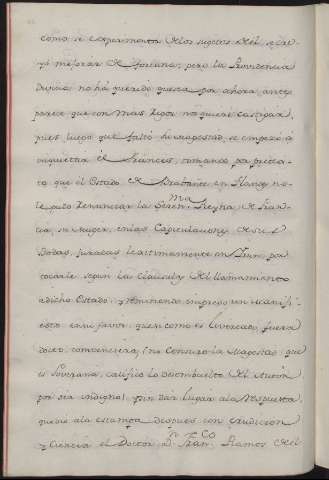 como se experimenta de los sugetos del
mejorar de fortuna; pero la Providencia
Divina no há querido que sea por ahora, antes
parece que con mas rigor nos quiere castigar,
pues luego que faltó Su Magestad, se empezó á
inquietar el Francés, tomando por pretex-
to que el Estado de Brabante en Flandes no
le pudo renunciar la Seren.ma Reyna de Fran-
cia, su Muger, en las Capitulaciones de sus
Bodas, juradas legitimamente en Irun, por
tocarle segun la clausula del llamamiento
a dicho Estado; y haviendo impreso un Manifi-
esto en su favor, que si como es
docto, convenciera, (no censuro la Magestad que
es Soverana, califico lo desembuelto del Autor
por ser indigno) sin dar lugar a la respuesta,
que dió a la estampa después con erudicion
y Ciencia el Doctor D.n Fran.co Ramos del